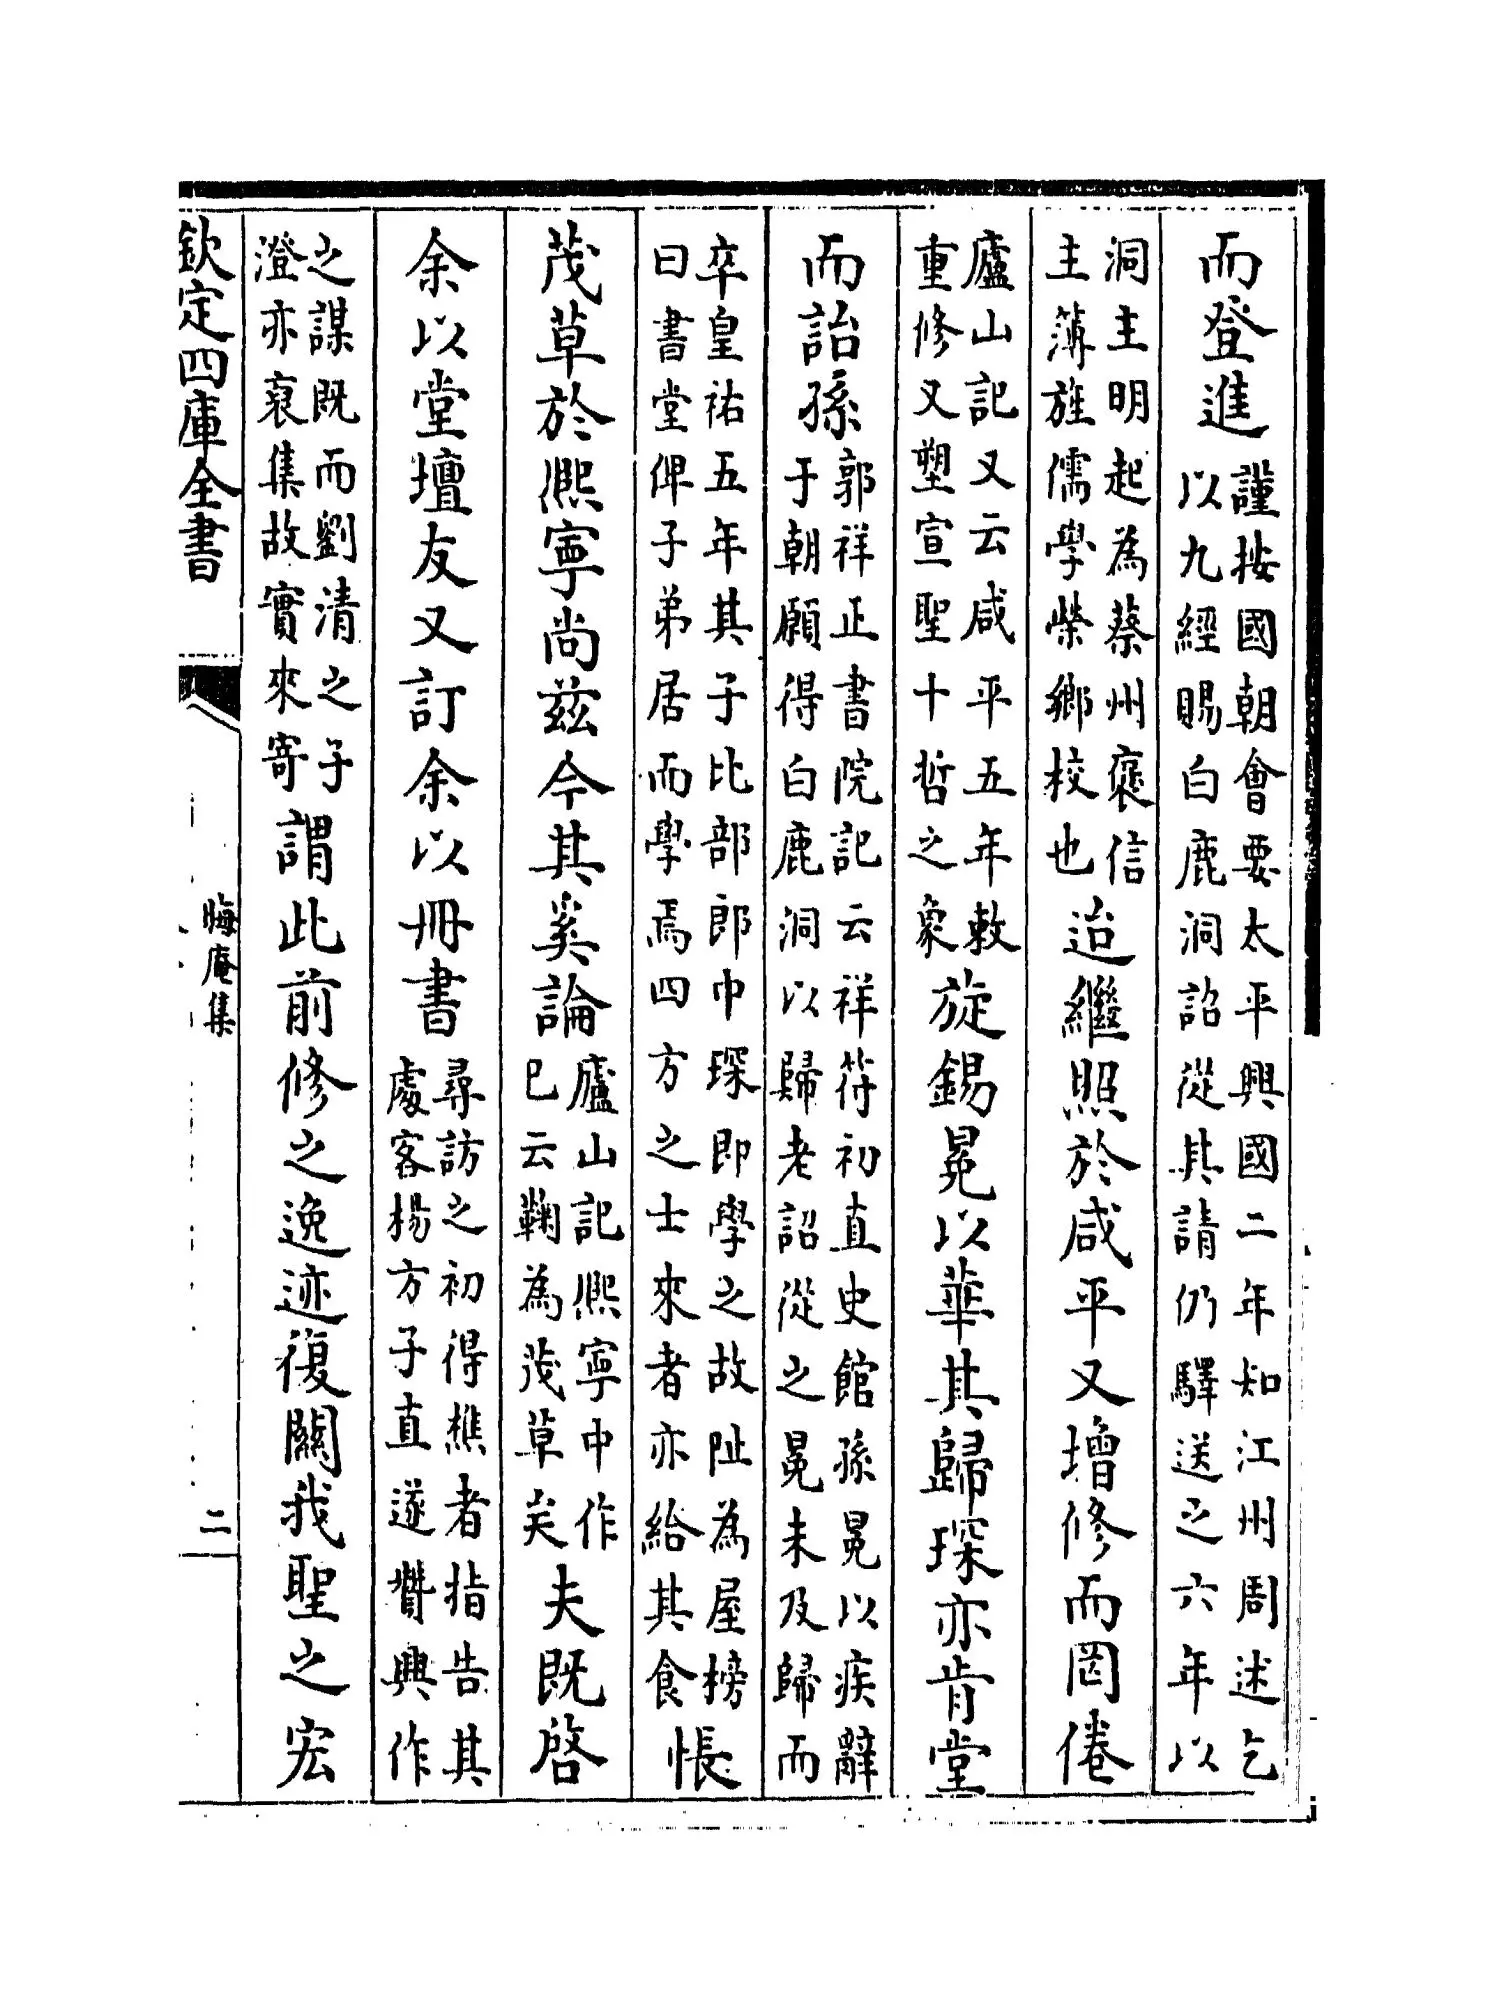 而登進謹按國朝會要太平興國二年知江州周述乞以九經賜白鹿洞詔從其請仍驛送之六年以
洞主明起為蔡州褒信主薄旌儒學榮鄉校也迨繼照於咸平又增修而罔倦
廬山記又云咸平五年敕重修又塑宣聖十哲之象旋錫冕以華其歸琛亦肯堂
而詒孫郭祥正書院記云祥符初直史館孫冕以疾辭于朝願得白鹿洞以歸老詔從之冕未及歸而
卒皇祐五年其子比部郎中琛即學之故址為屋榜曰書堂俾子弟居而學焉四方之士來者亦給其食悵
茂草於熙寧尚兹今其奚論廬山記熙寧中作已云鞠為茂草矣夫既啓
余以堂壇友又訂余以冊書尋訪之初得樵者指告其處客楊方子直遂贊興作
之謀既而劉清之子澄亦裒集故實來寄謂此前修之逸迹復關我聖之宏
欽定四庫全書
晦庵集
二